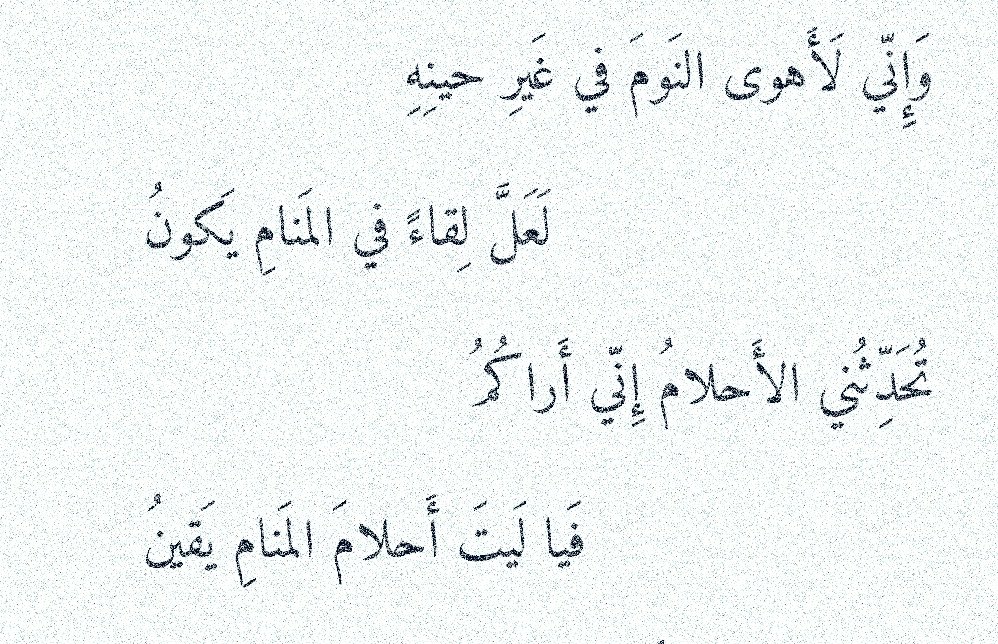 وَإِنّي لَأَهوى النَومَ في غَيرِ حينِهِ
لَعَلَّ لِقاءً في المَنامِ يَكونُ
تُحَدِّثُني الأَحلامُ إِنّي أَراكُمُ
فَيا لَيتَ أَحلامَ المَنامِ يَقينُ